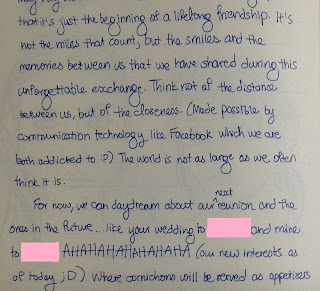 that it's just the beginning of a lifelong friendship. It's
not the miles that count, but the smiles and the
memories between us that we have shared during this
unforgettable exchange. Think not of the distance
between us, but of the closeness. (Made possible by
communication technology like Facebook which we are
both addicted to :P) The world is not as large as we often
think it is.
For now, we can daydream about our next reunion and the
ones in the future...like your wedding to and mine
to AHAHAHAHAHAHAHA (our new interests as
of today ;D) Where cornichons will be served as appetizers